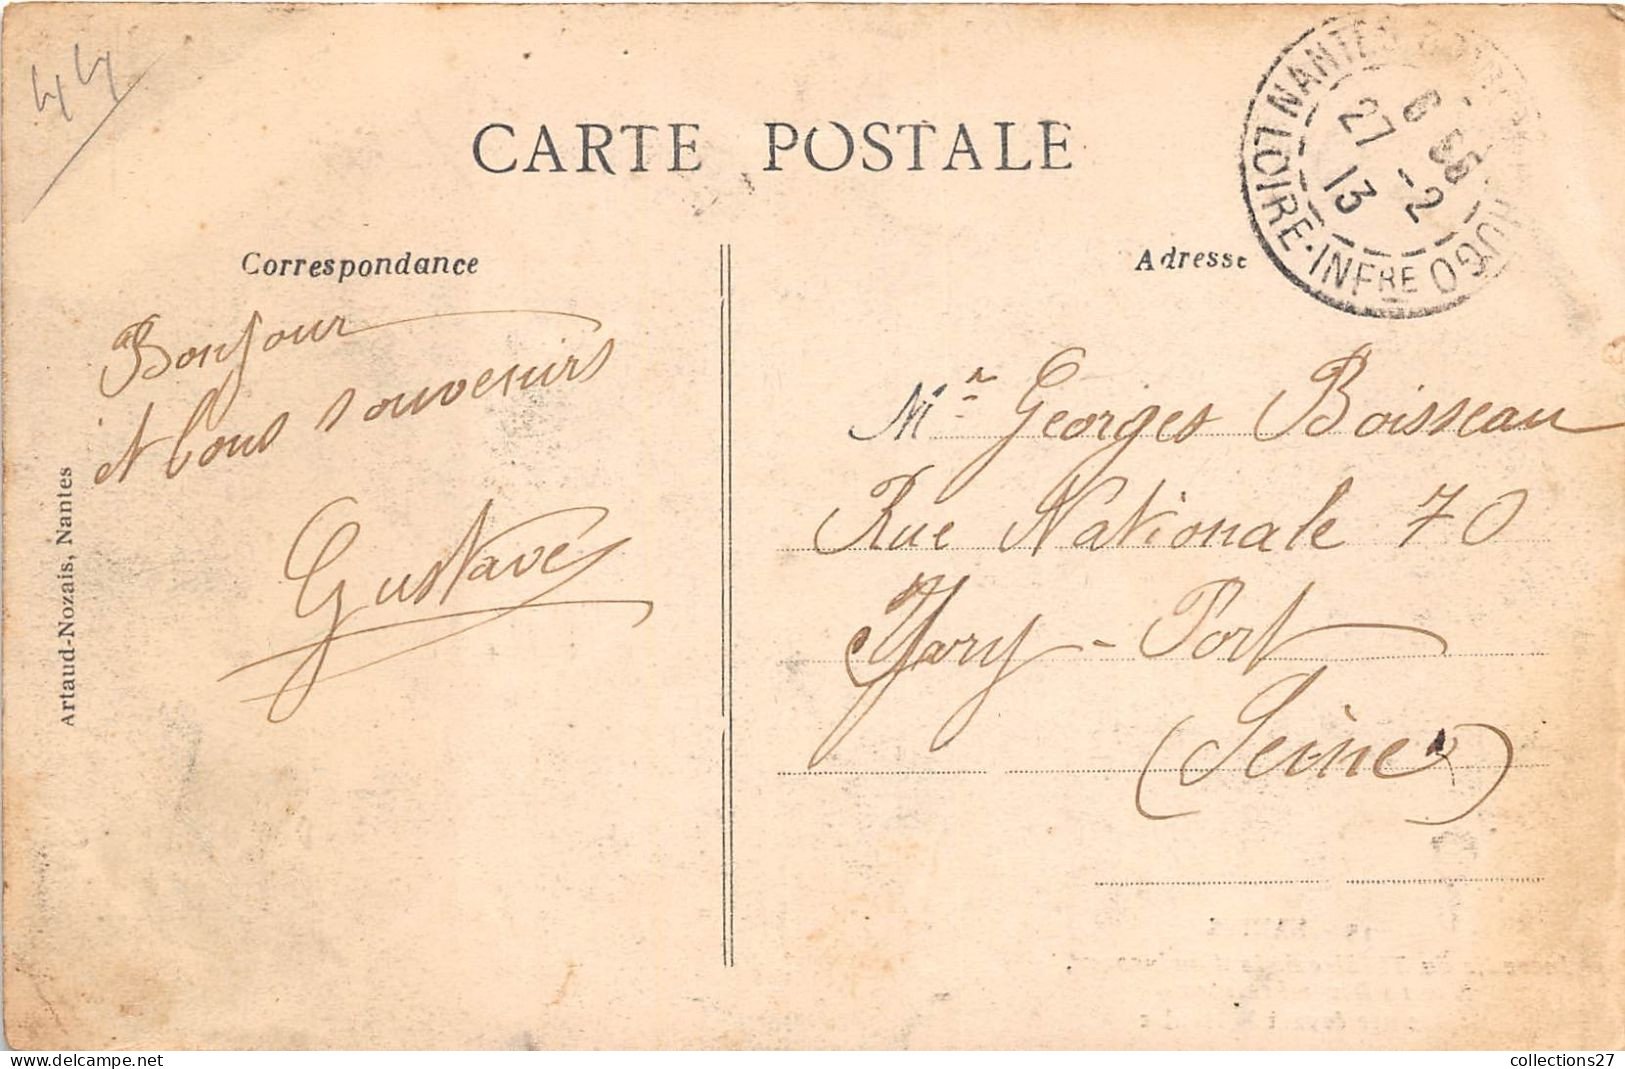 44
CARTE POSTALE
Correspondance
Adresse
NANTES
HUGO
LOIRE-INFRE
6 55
27 -2
13
Bonjour
et bons souvenirs
Gustave
Mr Georges Boisseau
Rue Nationale 70
Yvry-Port
(Seine)
Artaud-Nozais, Nantes
collections27